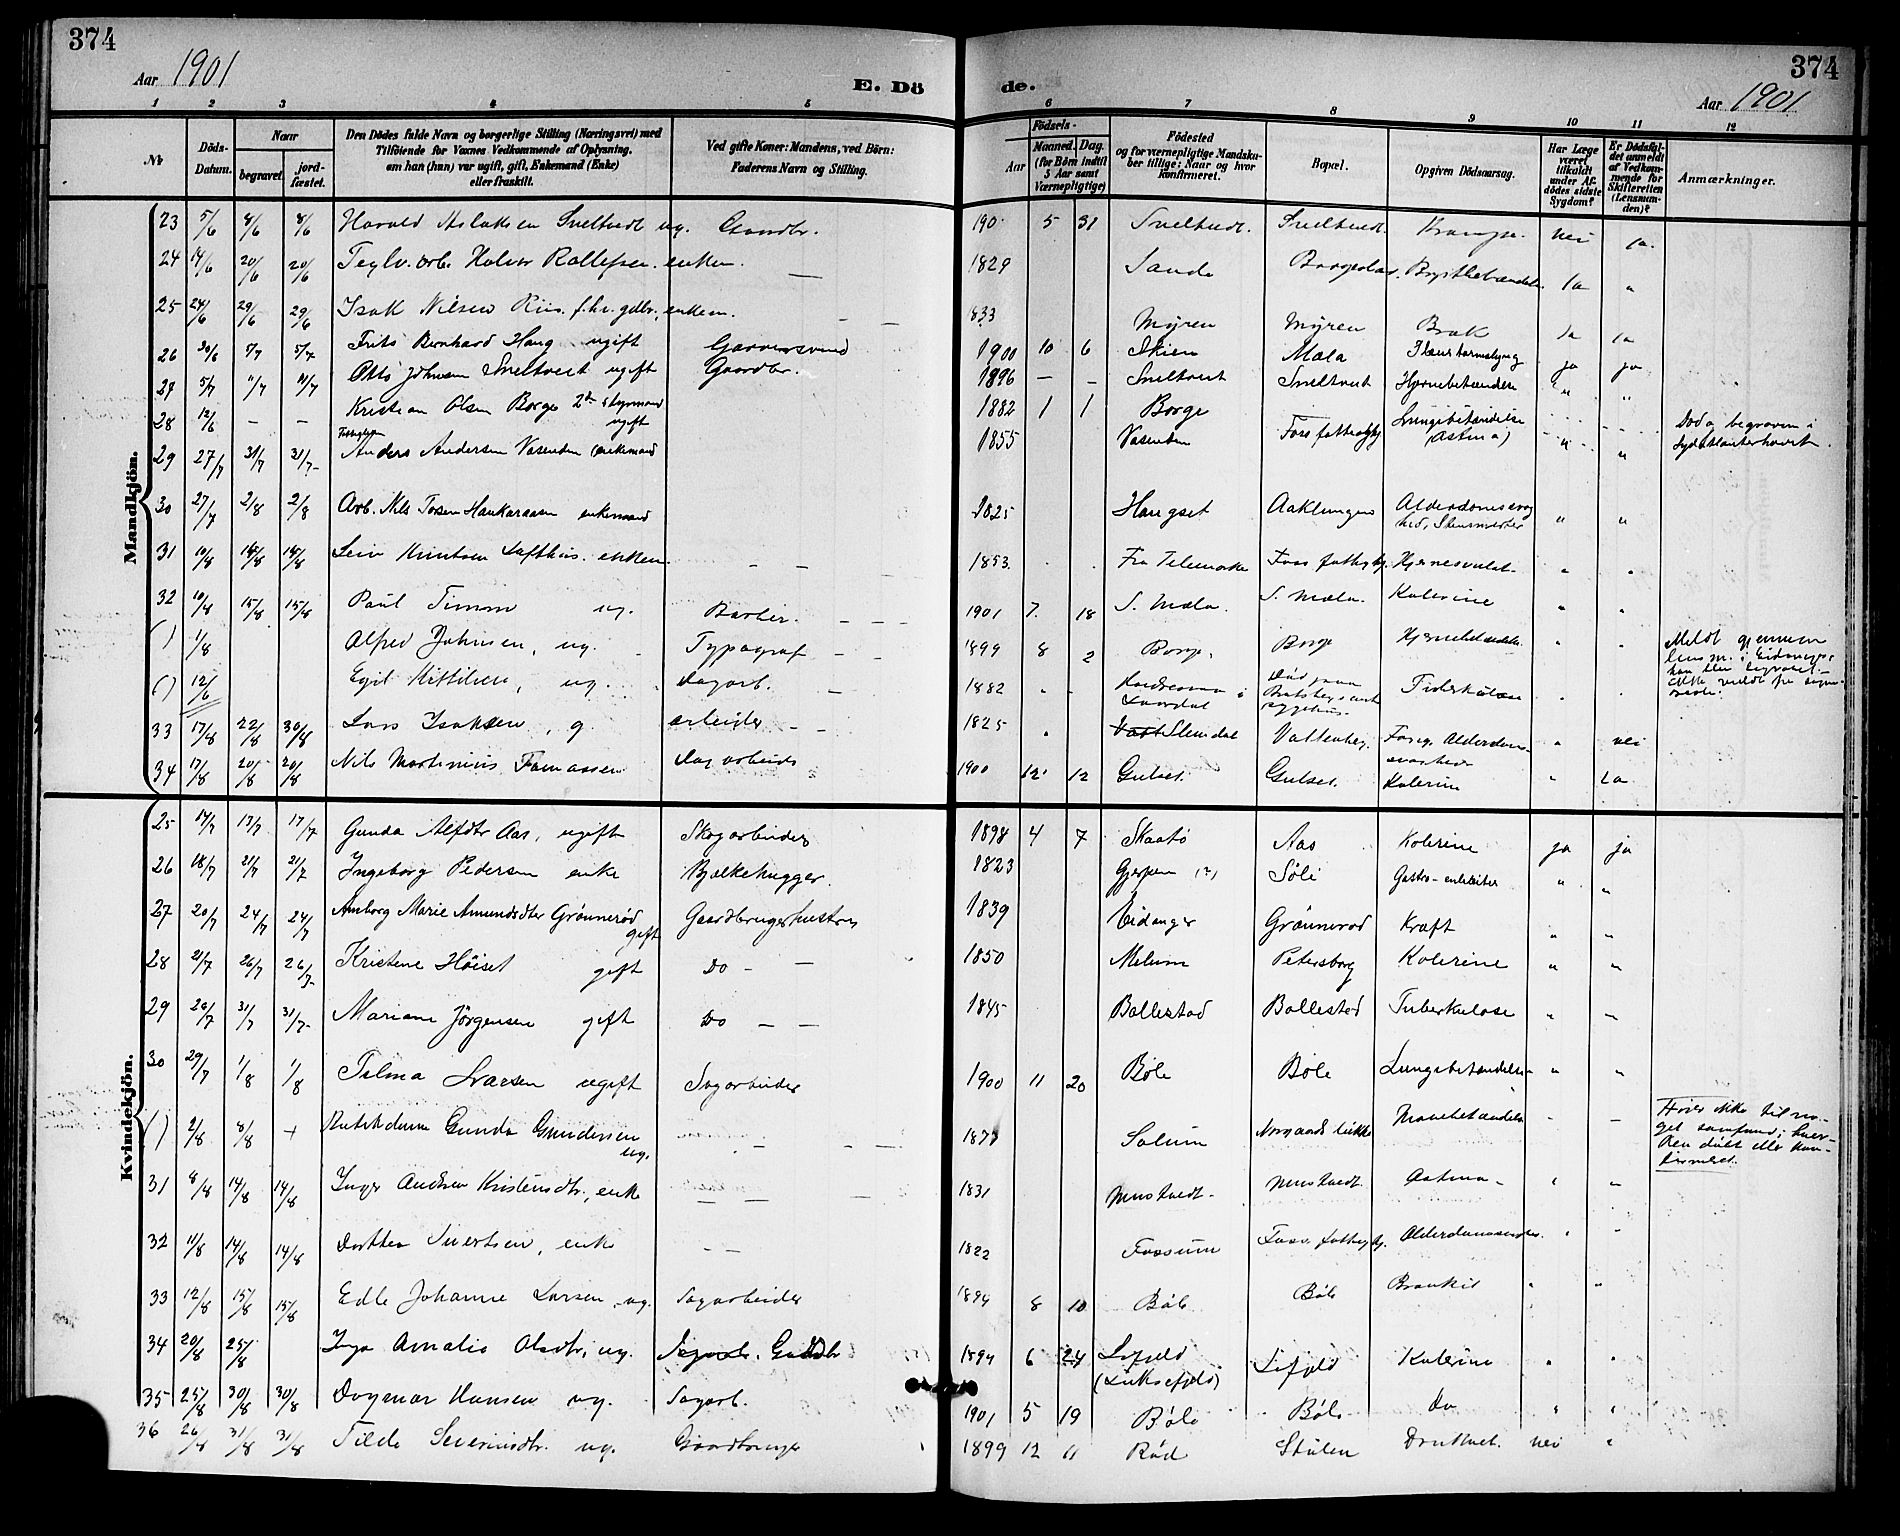 374
Aar 1901
E. Dö
de.
374
Aar 1901
1 2 3 4 5 6 7 8 9 10 11 12
No
Döds-Datum.
Naar
begravet.
jord-fæstet.
Den Dödes fulde Navn og borgerlige Stilling (Næringsvei) med
Tilföiende for Voxnes Vedkommende af Oplysning,
om han (hun) var ugift, gift, Enkemand (Enke)
eller fraskilt.
Ved gifte Koner: Mandens, ved Börn:
Faderens Navn og Stilling.
Födsels-
Aar
Maaned. Dag.
(for Börn indtil
5 Aar samt
Værnepligtige)
Födested
og for værnepligtige Mandsku-
ber tillige: Naar og hvor
konfirmeret.
Bopæl.
Opgiven Dödsaarsag.
Har Læge
været
tilkaldt
under Af-
dödes sidste
Sygdom?
Er Dödsfal-
det anmeldt
af Vedkom-
mende for
Skifteretten
(Lensman-
den)?
Anmærkninger.
Mandkjön.
23 5/6 8/6 8/6 Harald Aslaksen Sneltvedt ug. Gaardbr. 190 5 31 Sneltvedt. Sneltvedt. Krampe. nei ja
24 14/6 20/6 20/6 Teglv. arb. Halvor Rollefsen. enkem. — 1829 Sande Borgeskar. Brystbetændelse ja "
25 24/6 29/6 29/6 Isak Nilsen Riis. f.hv. gdbr., enkem. — — 1833 Myren Myren Brok ja ja
26 30/6 5/7 5/7 Frits Bernhard Haug ugift Garversvend 1900 10 6 Skien Mæla ja ja
27 5/7 11/7 11/7 Otto Johnsen Sneltvedt ugift Gaardbr. 1896 — — Sneltvedt Sneltvedt Hjernebetændelse " "
28 12/6 — — Kristian Olsen Borge 2den styrmand ugift 1882 1 1 Borge Död og begraven i Sydatlanterhavet
29 27/7 31/7 31/7 Anders Andersen Vasenden (enkemand 1855 Vasenden Foss fattigg. Lungebetændelse (Astma) " "
30 27/7 2/8 2/8 Arb. Nils Torsen Haukaraasen enkemand 1825 Haugset Aaklungen Alderdomssvaghed, " "
31 10/8 15/8 15/8 Leiv Knutsen Lofthus. enkem. — — 1853. Fra Telemarken Foss fattigg. Hjerneslag. " "
32 10/8 15/8 15/8 Paul Timm ug. Barbier. — — 1901 7. 18 S. Mæla. S. Mæla. Kolerine " "
( ) 1/8 Alfred Johnsen, ug. - Typograf — — 1899 8 2 Borge. Borge Hjernebetændelse " " Meldt gjennem lensm. i Eidanger,
( ) 12/6 Egil Kittilsen, ug. Dagarb. — 1882 " " i Laardal Död paa Tuberkulose
33 17/8 22/8 30/8 Lars Isaksen, g. arbeider — — 1825 " Slemdal Vattenberg. Alderdoms-svaghed " nei
34 17/8 20/8 20/8 Nils Martinius Tomassen Dagarbeider 1900 12 12 Gulset. Gulset. Kolerine " ja
Kvindekjön.
25 14/7 17/7 17/7 Gunda Alfdtr Aas, ugift Skogarbeider 1898 4 7 Skaatø Aas Kolerine ja ja
26 18/7 21/7 21/7 Ingeborg Pedersen enke Bjelkehugger. 1823 Gjerpen (?) Søli Gastro-enteritis " "
27 20/7 24/7 24/7 Anborg Marie Amundsdtr Grønnerød gift Gaardbrugerhustru 1839 Eidanger Grønnerød Kræft " "
28 21/7 26/7 26/7 Kristine Høiset gift Do — — 1850 Melum Petersborg Kolerine " "
29 28/7 31/7 31/7 Mariane Jörgensen gift Do — — 1845 Bollestad Bollestad Tuberkulose " "
30 29/7 1/8 1/8 Tilma Larsen ugift Sagarbeider 1900 11 20 Bøle Bøle Lungebetændelse " "
( ) 2/8 8/8 + Gunda Gundersen ug. — — — 1877 Solum Mavebetændelse - — Hörer ikke til no-get samfund; hver-ken döbt eller kon-firmeret.
31 8/8 14/8 14/8 Inger Andrea Kristensdtr., enke — — — 1831 Mustvedt - Mustvedt Astma - " "
32 11/8 14/8 14/8 Dorthea Sivertsen, enke — — 1822 Fossum Foss. fattigg. " "
33 12/8 15/8 15/8 Edle Johanne Larsen, ug. Sagarbeider 1894 8 10 Bøle Bøle Bronkit " "
34 20/8 25/8 Inga Amalie Olsdtr., ug. Gaardbr 1894 6 24 Lifjeld (Luksefjeld) Lifjeld Kolerine " "
35 25/8 30/8 30/8 Dagmar Hansen ug. Sagarb. 1901 5 19 Bøle Bøle Do " "
36 26/8 31/8 31/8 Tilda Severinsdtr. ug. Gaardbruger 1899 12 11 Rød Stulen Druknet. nei "